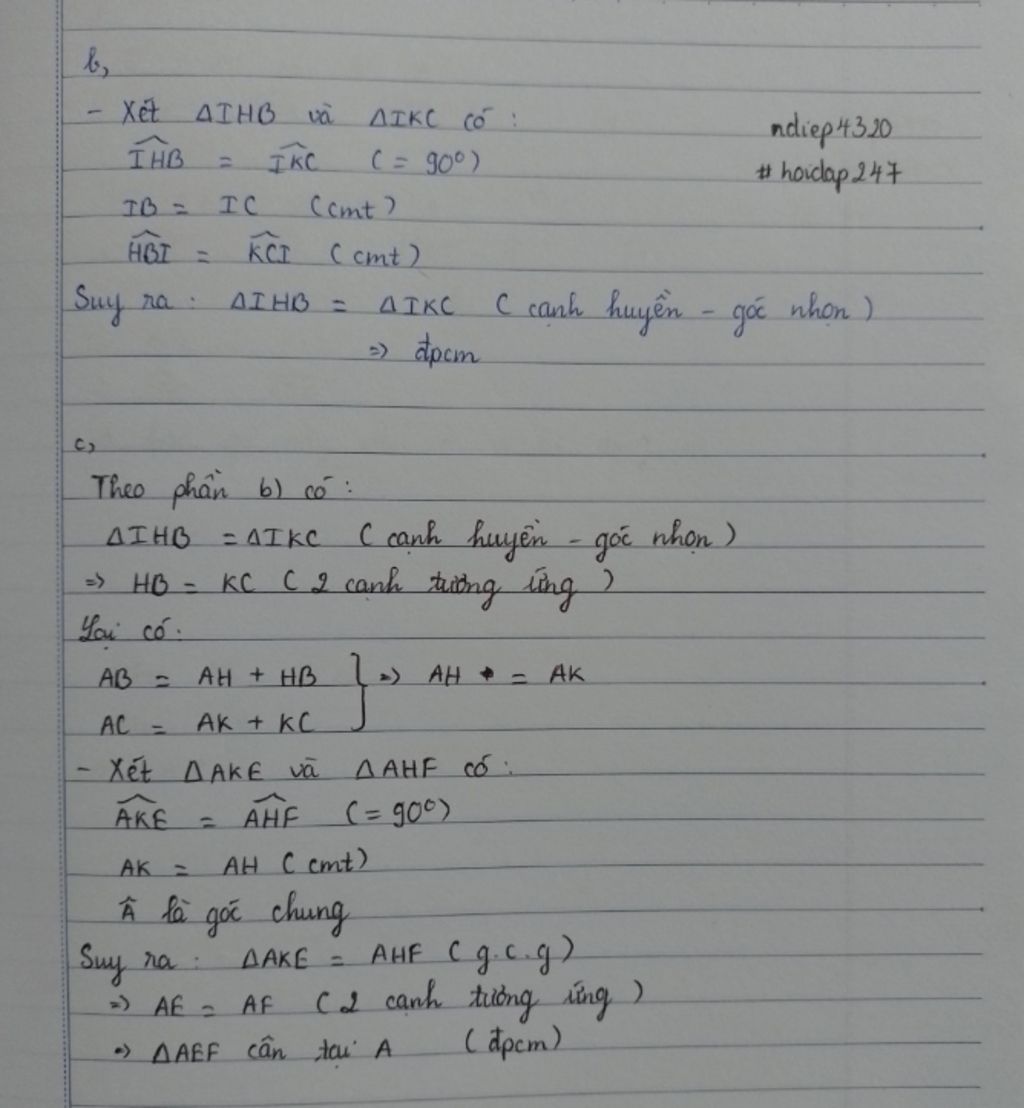 b,
- Xét ΔIHB và ΔIKC có :
ndiep4320
\widehat{IHB} = \widehat{IKC} (= 90°)
# hoidap247
IB = IC (cmt)
\widehat{HBI} = \widehat{KCI} (cmt)
Suy ra : ΔIHB = ΔIKC (cạnh huyền - góc nhọn)
=> đpcm
c,
Theo phần b) có :
ΔIHB = ΔIKC (cạnh huyền - góc nhọn)
=> HB = KC (2 cạnh tương ứng)
Lại có:
AB = AH + HB } => AH = AK
AC = AK + KC
- Xét ΔAKE và ΔAHF có :
\widehat{AKE} = \widehat{AHF} (= 90°)
AK = AH (cmt)
Â là góc chung
Suy ra : ΔAKE = AHF (g.c.g)
=> AE = AF (2 cạnh tương ứng)
=> ΔAEF cân tại A (đpcm)